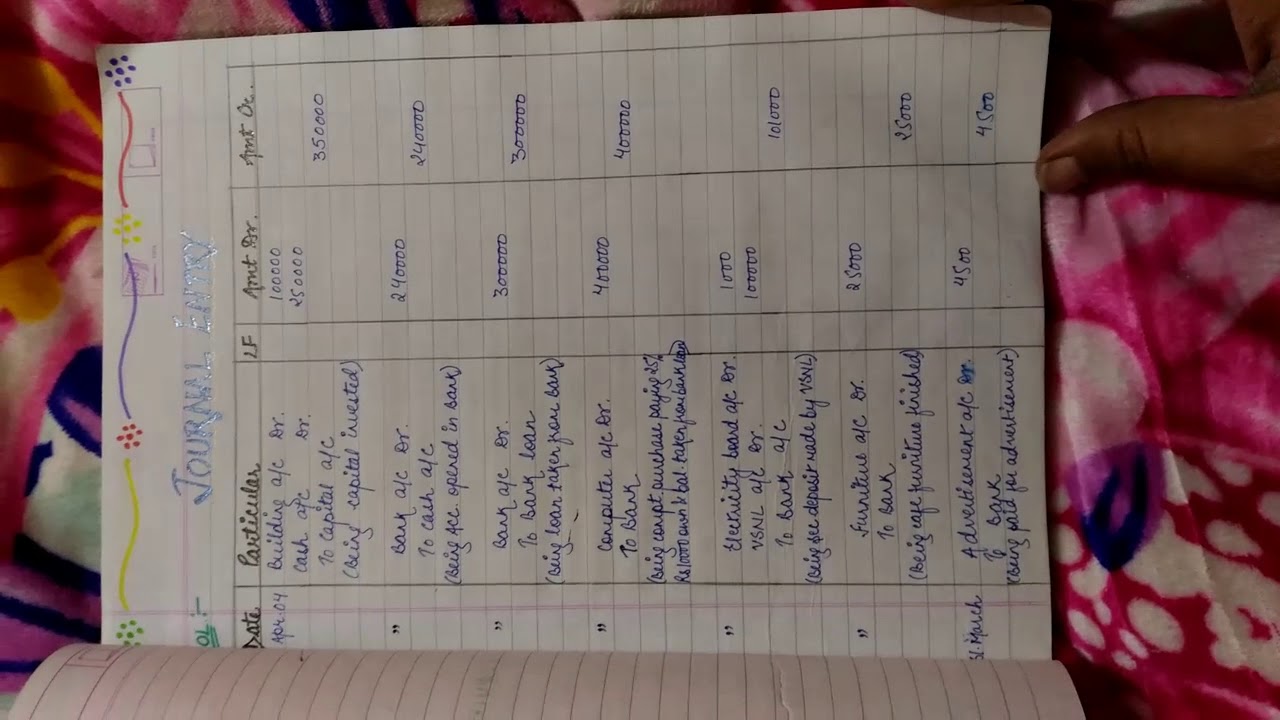 JOURNAL ENTRY
SOL :-
Date Particular LF Amt Dr. Amt Cr.
Apr.04 Building a/c Dr. 100000
Cash a/c Dr. 250000
To Capital a/c 350000
(Being capital invested)
" Bank a/c Dr. 240000
To Cash a/c 240000
(Being Acc. opened in Bank)
" Bank a/c Dr. 300000
To Bank loan 300000
(Being loan taken from bank)
" Computer a/c Dr. 400000
To Bank 400000
(Being comput. purchase paying 25%
Rs10000 own & bal. taken from bank loan)
" Electricity board a/c Dr. 1000
VSNL a/c Dr. 100000
To Bank a/c 101000
(Being sec deposit made by VSNL)
" Furniture a/c Dr. 25000
To Bank 25000
(Being cafe furniture finished)
31.March Advertisement a/c Dr. 4500
To Bank 4500
(Being paid for advertisement)